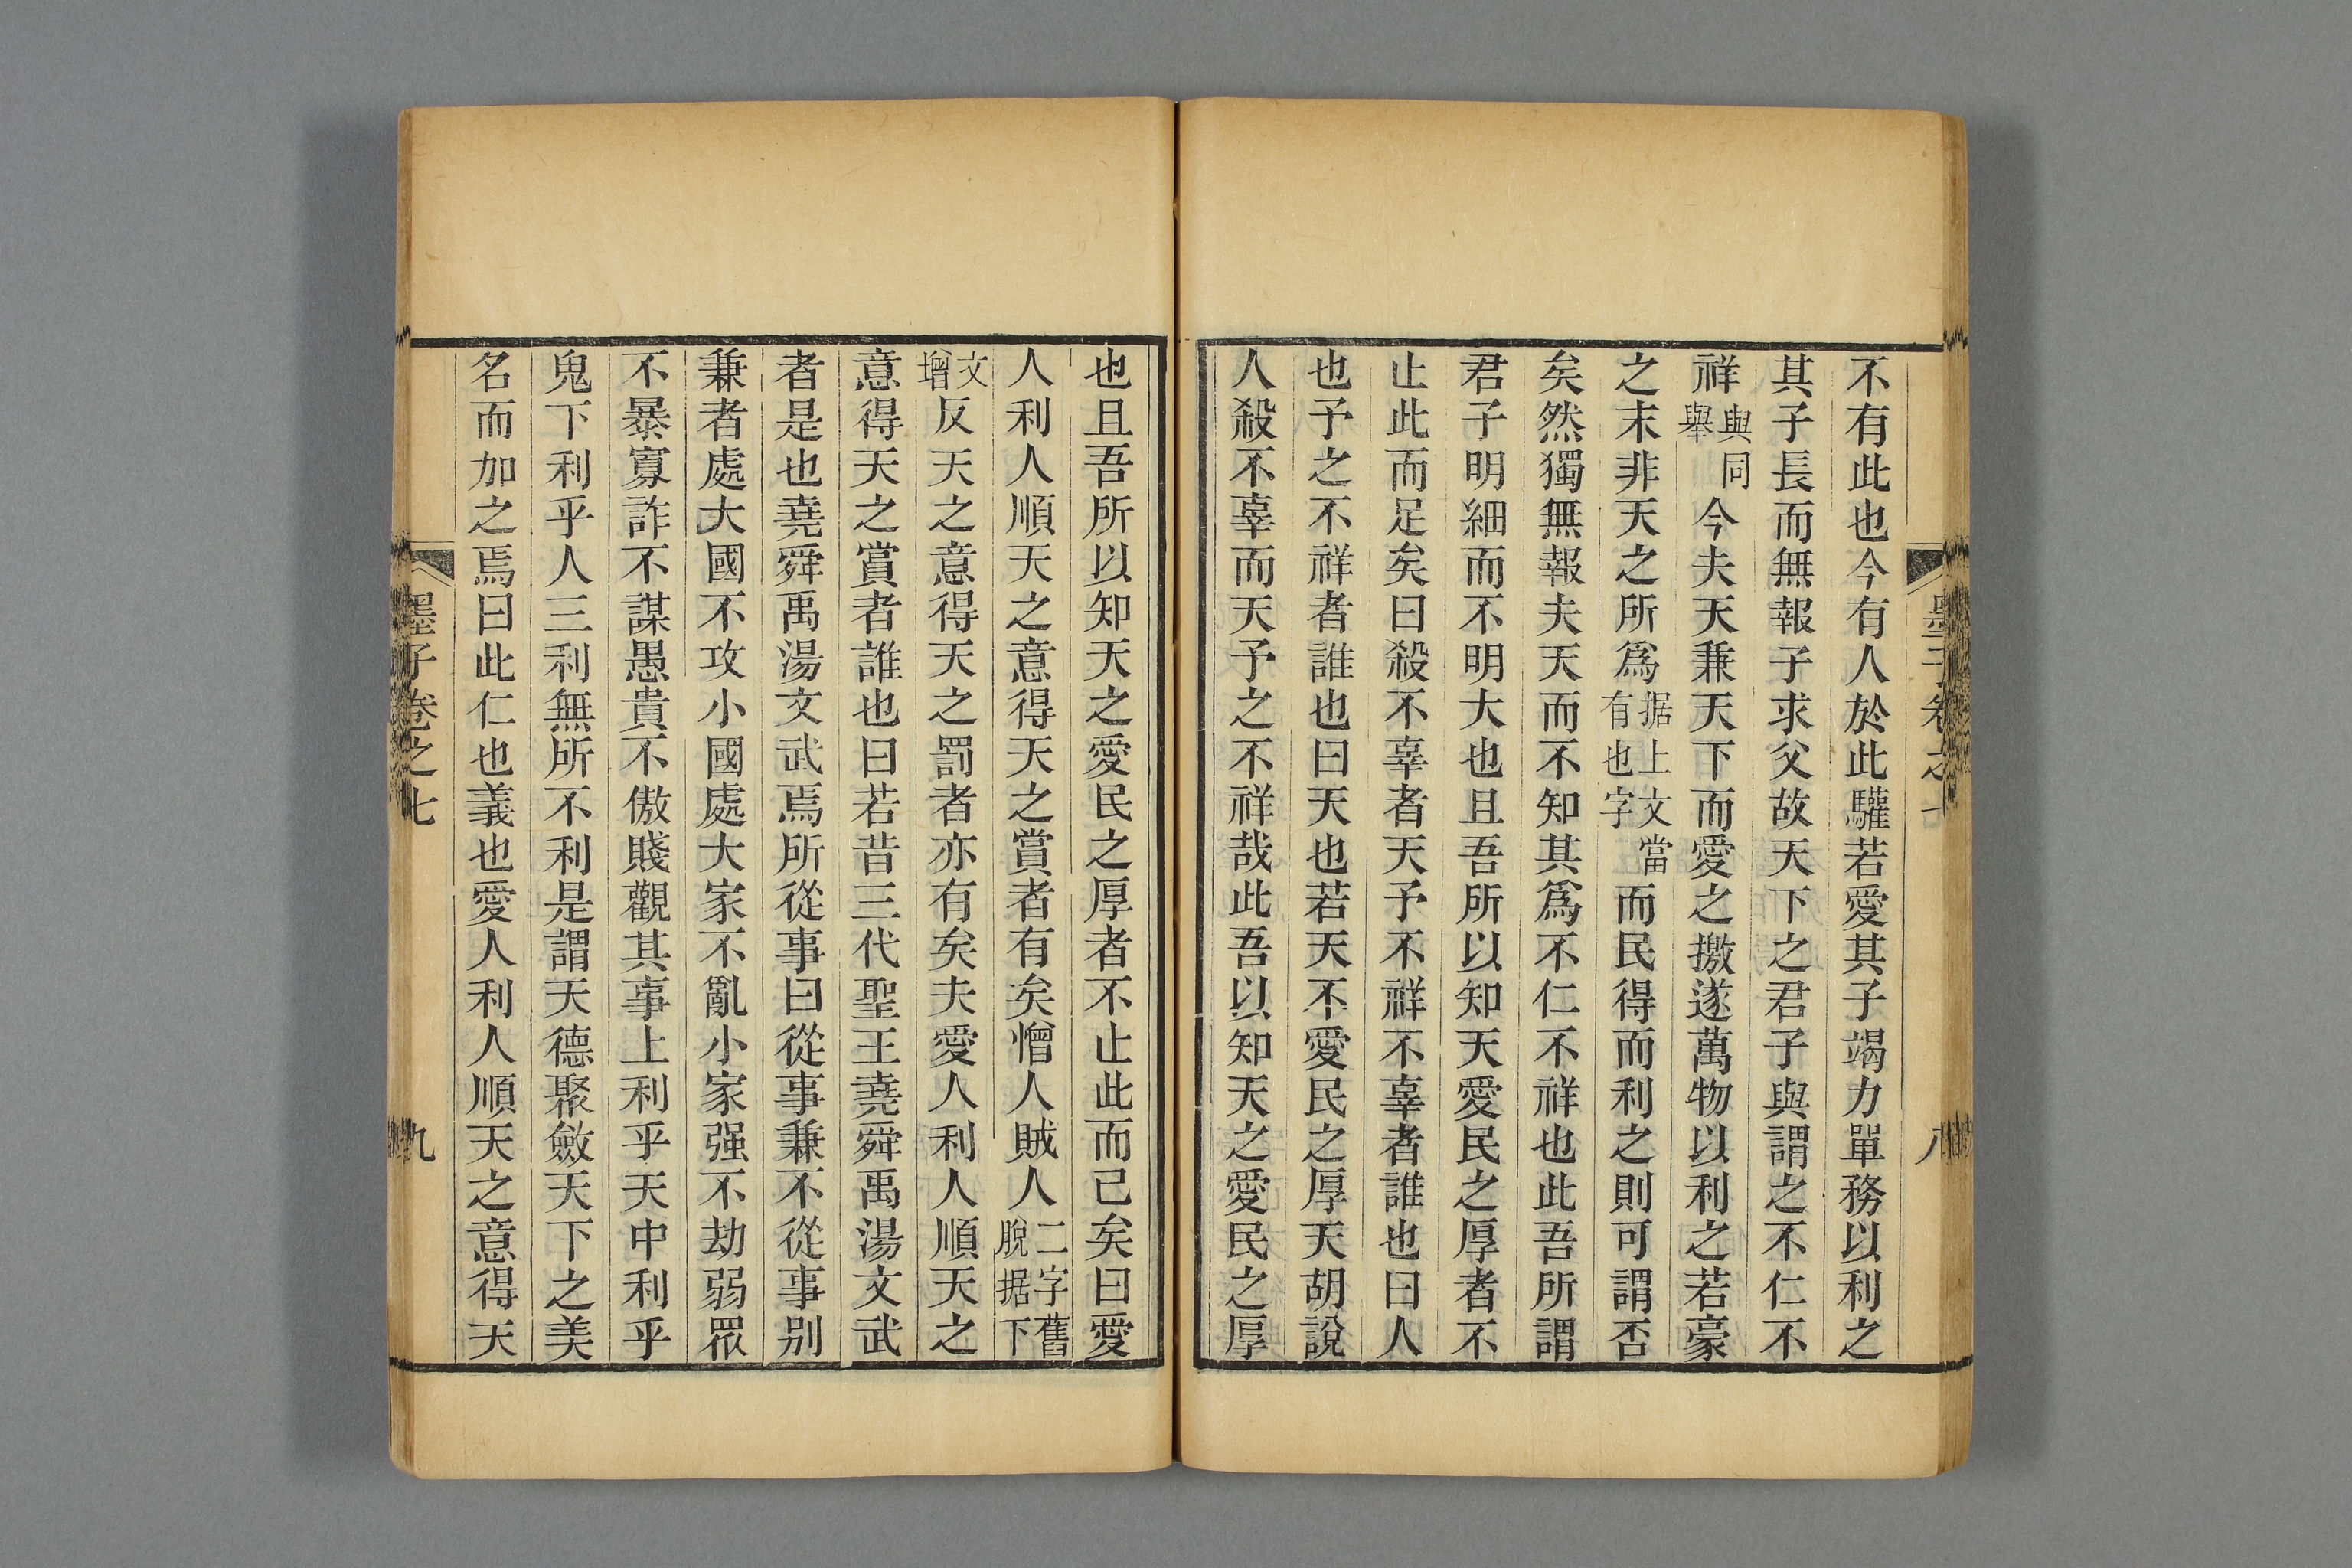 不有此也今有人於此驩若愛其子竭力單務以利之
其子長而無報子求父故天下之君子與謂之不仁不
祥與同舉今夫天兼天下而愛之撽遂萬物以利之若豪
之末非天之所爲据上文當有也字而民得而利之則可謂否
矣然獨無報夫天而不知其爲不仁不祥也此吾所謂
君子明細而不明大也且吾所以知天愛民之厚者不
止此而足矣曰殺不辜者天予不祥不辜者誰也曰人
也予之不祥者誰也曰天也若天不愛民之厚天胡說
人殺不辜而天予之不祥哉此吾以知天之愛民之厚
墨子卷之七
八
也且吾所以知天之愛民之厚者不止此而已矣曰愛
人利人順天之意得天之賞者有矣憎人賊人二字舊脫据下
文增反天之意得天之罰者亦有矣夫愛人利人順天之
意得天之賞者誰也曰若昔三代聖王堯舜禹湯文武
者是也堯舜禹湯文武焉所從事曰從事兼不從事別
兼者處大國不攻小國處大家不亂小家强不劫弱眾
不暴寡詐不謀愚貴不傲賤觀其事上利乎天中利乎
鬼下利乎人三利無所不利是謂天德聚斂天下之美
名而加之焉曰此仁也義也愛人利人順天之意得天
墨子卷之七
九